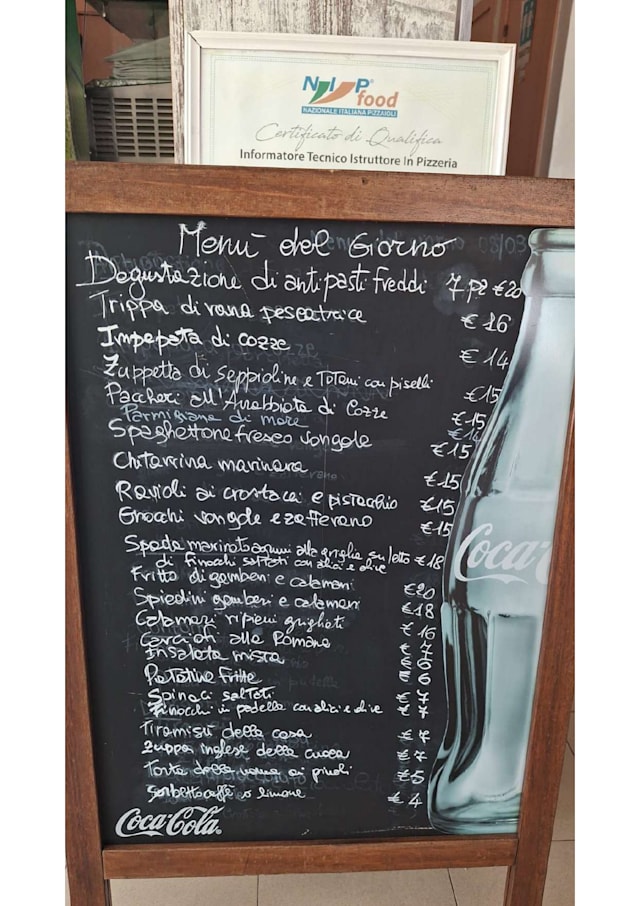 NIP® food
NAZIONALE ITALIANA PIZZAIOLI
Certificato di Qualifica
Informatore Tecnico Istruttore In Pizzeria
Menù del Giorno
Degustazione di antipasti freddi 7 pz €20
Trippa di rana pescatrice €16
Impepata di cozze €14
Zuppetta di seppioline e Totani con piselli €15
Paccheri all'Arrabbiata di Cozze €15
Parmigiana di mare €14
Spaghettone fresco vongole €15
Chitarrina marinara €15
Ravioli ai crostacei e pistacchio €15
Gnocchi vongole e zafferano €15
Spada marinato agrumi alla griglia su letto €18
di finocchi saltati con alici e olive
Fritto di gamberi e calamari €20
Spiedini gamberi e calamari €18
Calamari ripieni grigliati €16
Carciofi alla Romana €7
Insalata mista €6
Patatine fritte €6
Spinaci saltati €7
Finocchi in padella con alici e olive €7
Tiramisù della casa €7
Zuppa inglese della cuoca €7
Torta della nonna ai pinoli €5
Sorbetto caffè o limone €4
Coca-Cola®
Coca-C